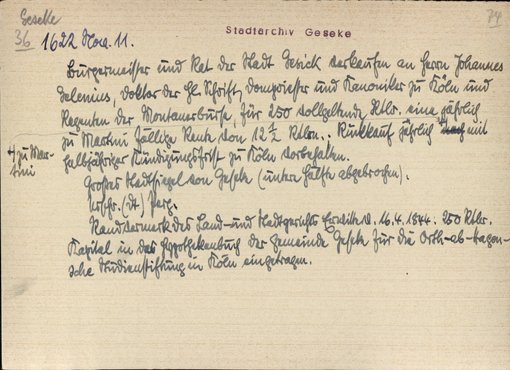 Geseke
74
36
Stadtarchiv Geseke
1622 Nov. 11.
Bürgermeister und Rat der Stadt Gesick verkaufen an Herrn Johannes
Gelenius, Doktor der hl. Schrift, Dompriester und Kanoniker zu Köln und
Regenten der Montanerburse, für 250 vollgeltende Rtlr. eine jährlich
zu Martini fällige Rente von 12 1/2 Rtlrn.. Rückkauf jährlich mit
+) zu Mar-
tini
halbjähriger Kündigungsfrist zu Köln vorbehalten.
Großes Stadtsiegel von Geseke (untere Hälfte abgebrochen).
Urschr. (dt.) Perg.
Randvermerk des Land- und Stadtgerichts Erwitte v. 16.4.1844. 250 Rtlr.
Kapital in das Hypothekenbuch der Gemeinde Geseke für die Orth-ab-Hagen-
sche Studienstiftung in Köln eingetragen.